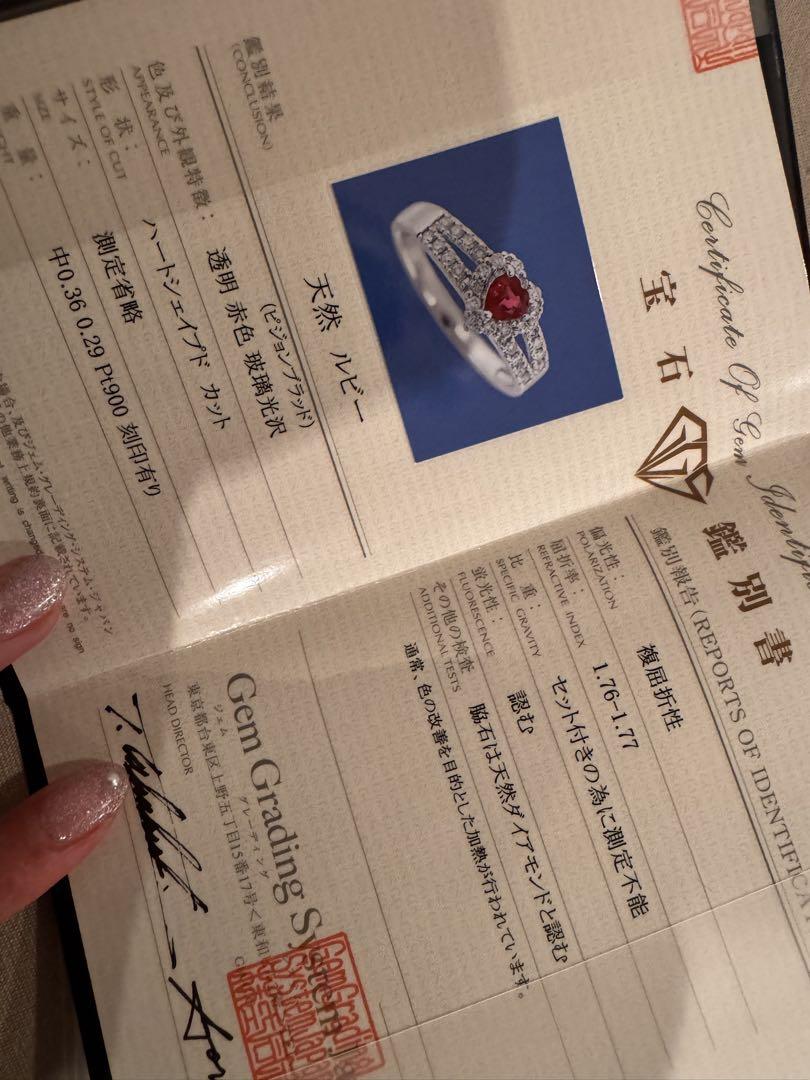 Certificate Of Gem Identif
宝石 鑑別書
GGS
鑑別結果
(CONCLUSION)
天然 ルビー
(ピジョンブラッド)
色及び外観特徴:
APPEARANCE
透明 赤色 玻璃光沢
形状:
STYLE OF CUT
ハートシェイプド カット
サイズ:
SIZE
測定省略
重量:
中0.36 0.29 Pt900 刻印有り
鑑別報告(REPORTS OF IDENTIFICA
偏光性:
POLARIZATION
複屈折性
屈折率:
REFRACTIVE INDEX
1.76-1.77
比重:
SPECIFIC GRAVITY
セット付きの為に測定不能
蛍光性:
FLUORESCENCE
認む
その他の検査
ADDITIONAL TESTS
脇石は天然ダイアモンドと認む
通常、色の改善を目的とした加熱が行われています。
Gem Grading System
ジェム グレーディング
東京都台東区上野五丁目15番17号<東和
HEAD DIRECTOR